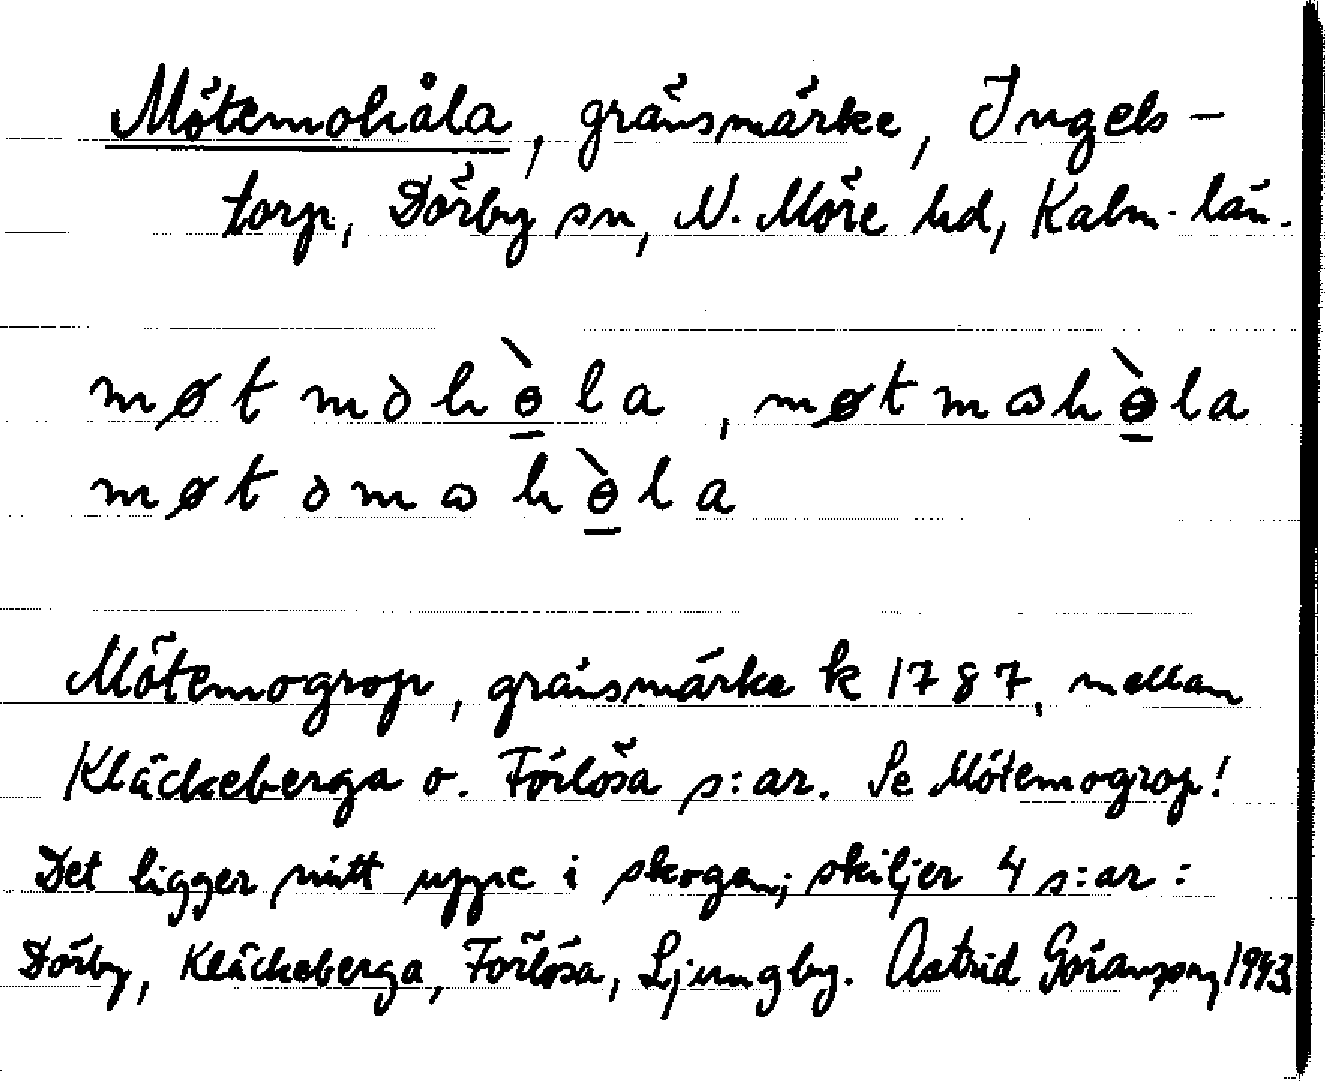 Mötemohåla, gränsmärke, Ingels-
torp, Dörby sn, N. Möre hd, Kalm. län.
møt mə hɵ̀la, møt mɷhɵ̀la
møt əmɷ hɵ̀la
Mötemogrop, gränsmärke k 1787, mellan
Kläckeberga o. Förlösa s:ar. Se Mötemogrop!
Det ligger mitt uppe i skogen; skiljer 4 s:ar:
Dörby, Kläckeberga, Förlösa, Ljungby. Astrid Göransson, 1943